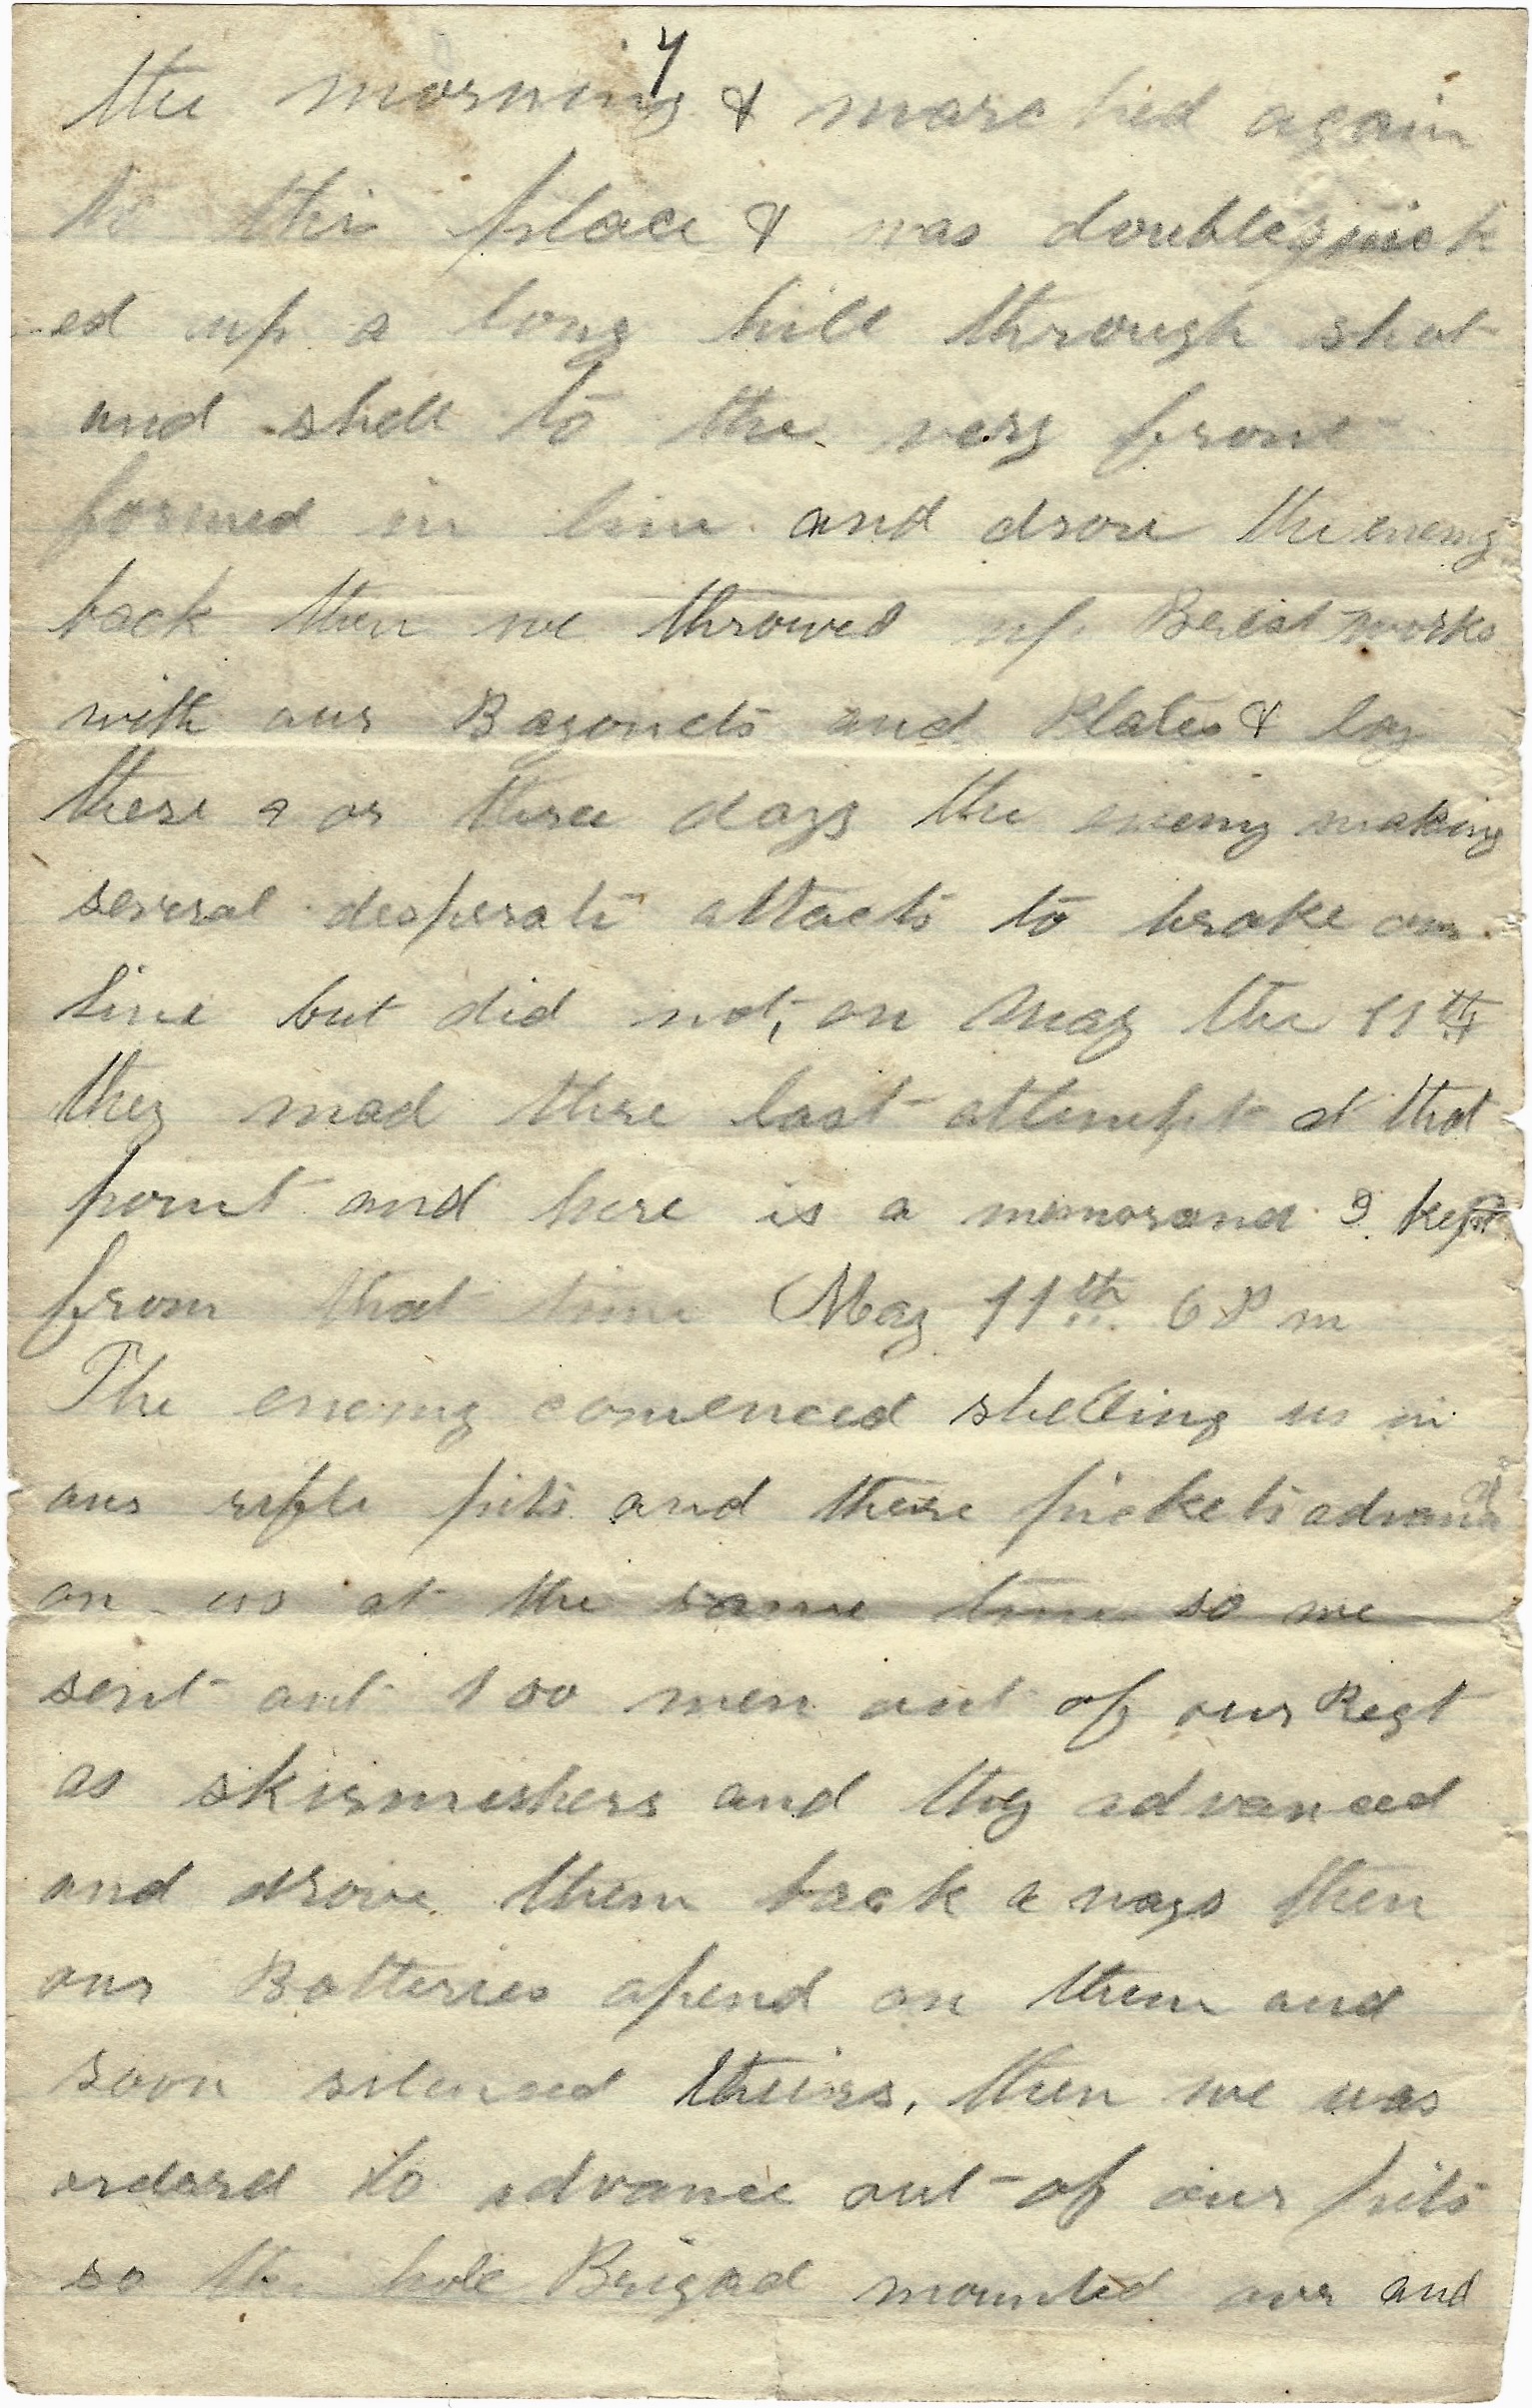 4
the morning & marched again
to this place & was doublequick
ed up a long hill through shot
and shell to the very front
formed in line and drove the enemy
back then we throwed up Breist works
with our Bayonets and Plates & lay
there 2 or three days the enemy making
several desperate attacts to brake our
line but did not, on May the 11th
they mad there last attempt at that
point and here is a memorand I kept
from that time May 11th 6 P m
The enemy comenced shelling us in
our rifle pits and there pickets advancd
on us at the same time so we
sent out 100 men out of our Regt
as skirmishers and they advanced
and drove them back a ways then
our Batteries opend on them and
soon silenced theirs, then we was
orderd to advance out of our pits
so the hole Brigad mounted over and